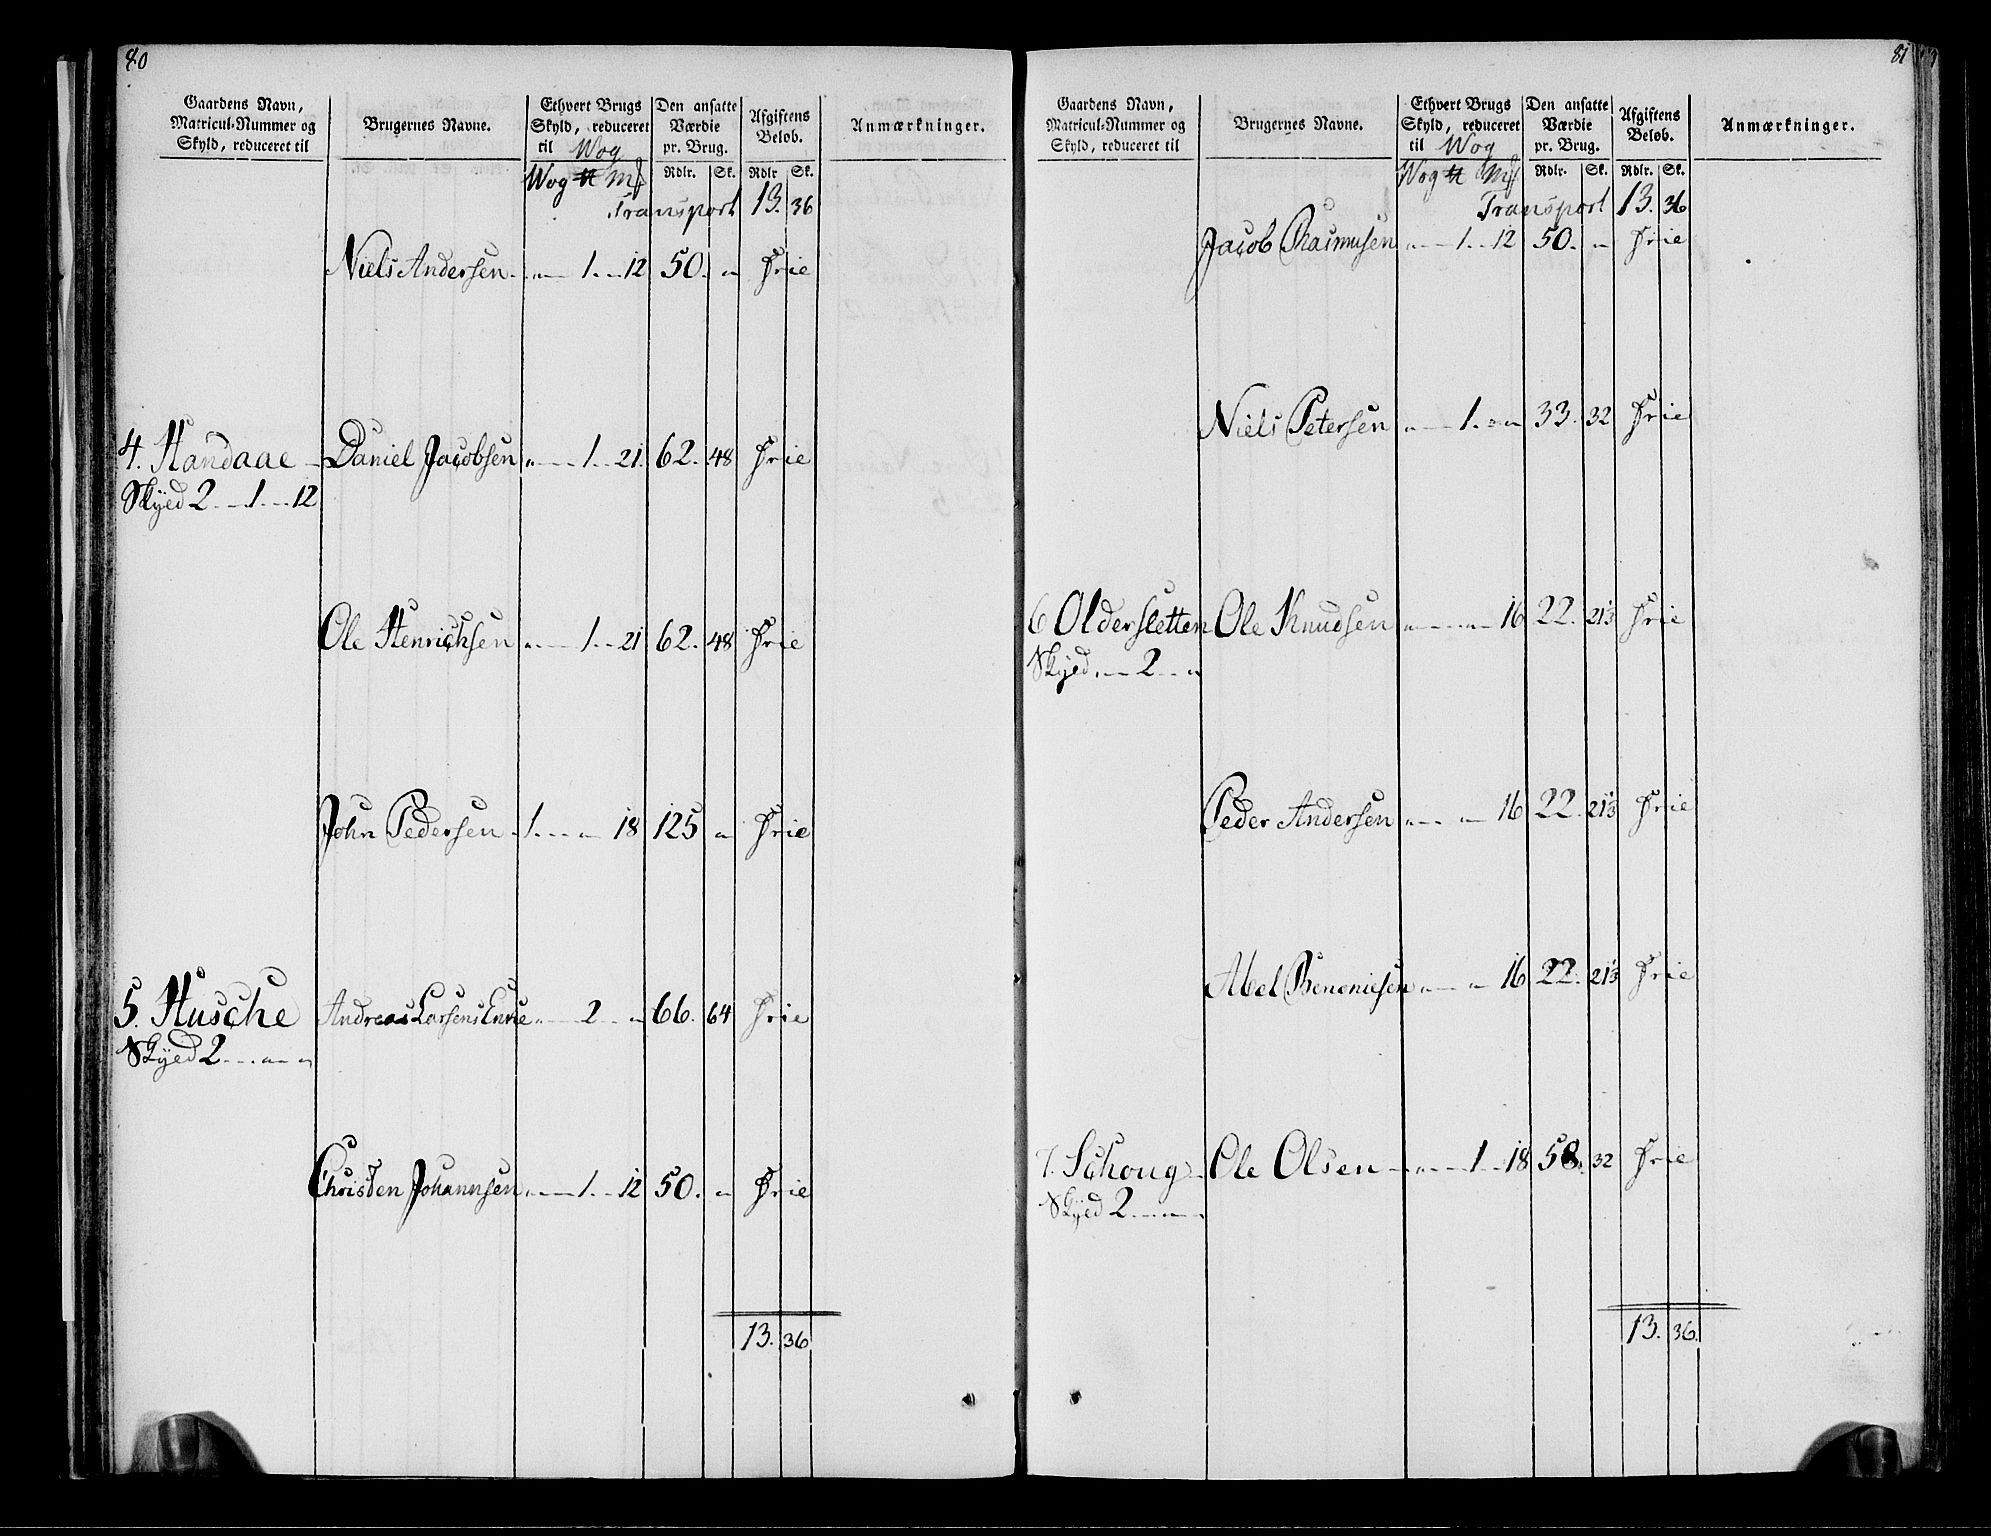 80
Gaardens Navn, Matricul-Nummer og Skyld, reduceret til
Brugernes Navne.
Ethvert Brugs Skyld, reduceret til Wog
Den ansatte Værdie pr. Brug.
Afgiftens Beløb.
Anmærkninger.
Wog Rdlr. Sk. Rdlr Sk.
Transport 13. 36
Niels Andersen 1 12 50. " Frie
4. Handaae Daniel Jacobsen 1 21. 62. 48 Frie
Skyld 2 1 12
Ole Henrichsen 1 21 62. 48 Frie
John Pedersen 1 " 18 125 " Frie
5. Husche Andreas Larsens Enke 2 " 66. 64 Frie
Skyld 2 " "
Christen Johannsen 1 12 50. " Frie
13. 36
81
Gaardens Navn, Matricul-Nummer og Skyld, reduceret til
Brugernes Navne.
Ethvert Brugs Skyld, reduceret til Wog
Den ansatte Værdie pr. Brug.
Afgiftens Beløb.
Anmærkninger.
Wog Rdlr. Sk. Rdlr. Sk.
Transport 13. 36
Jacob Rasmusen 1 12 50. " Frie
Niels Petersen 1 " 33. 32 Frie
6 Oldersletten Ole Knudsen " 16 22. 21⅓ Frie
Skyld " 2 "
Peder Andersen " 16 22. 21⅓ Frie
Abel Benoniesen " 16 22. 21⅓ Frie
7. Schoug Ole Olsen 1 18 58. 32 Frie
Skyld 2 " "
13. 36.